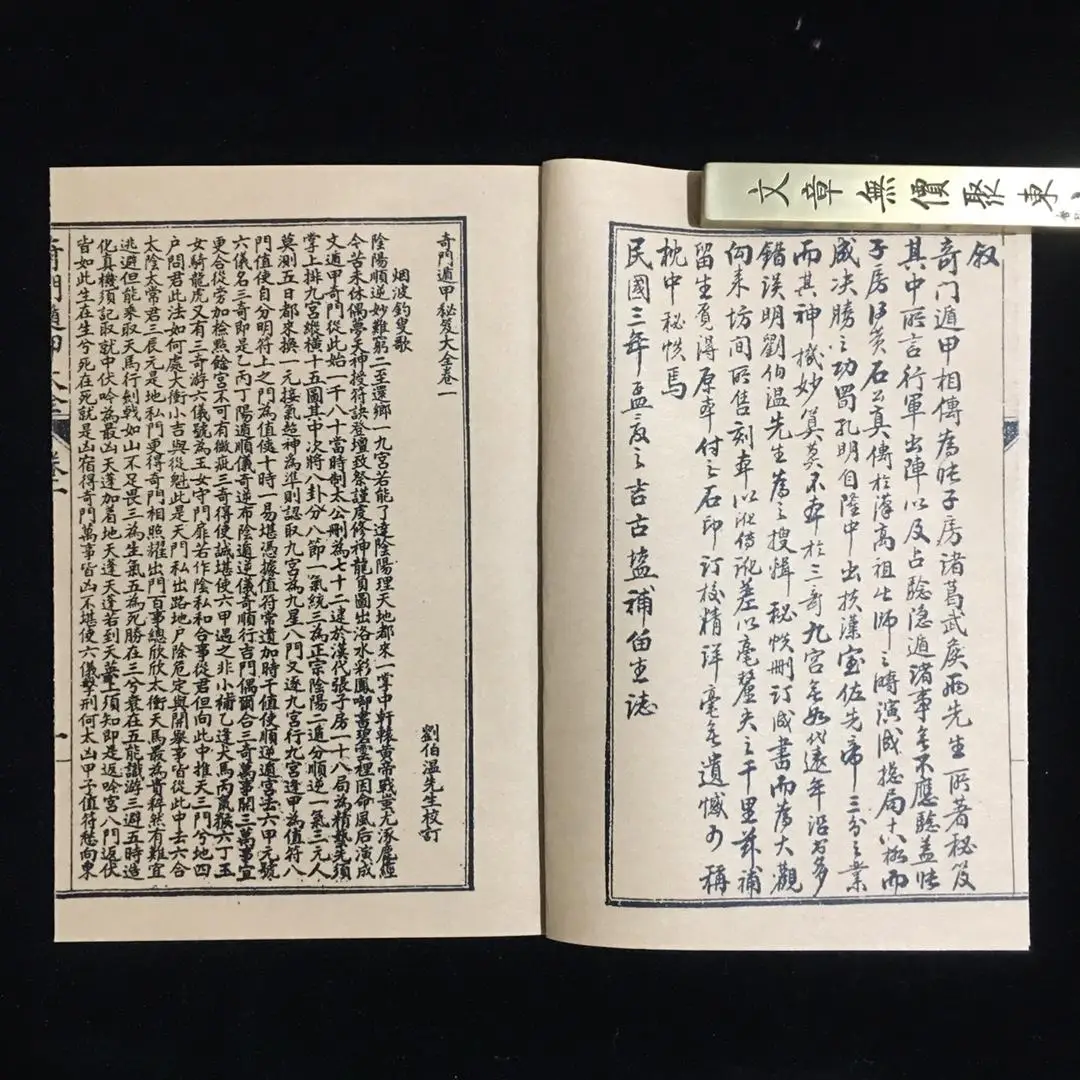 文章無價聚東
叙
奇门遁甲相傳為张子房諸葛武侯两先生所著秘笈
其中所言行軍出陣以及占驗隐遁諸事無不應驗盖张
子房得黄石公真傳於漢高祖出師之時演成捴局十八極而
成决勝之功蜀孔明自隆中出扶漢室佐先帝三分之業
而其神機妙算莫不本於三奇九宫無如代遠年沿為多
錯误明劉伯温先生為之搜缉秘帙删订成書而為大觀
向来坊间所售刻本以讹传讹差以毫釐失之千里茲補
留生覓得原本付之石印订校精详毫無遺憾可称
枕中秘帙焉
民國三年孟夏之吉古盐補留生誌
奇門遁甲秘笈大全卷一
劉伯温先生校訂
烟波釣叟歌
陰陽順逆妙難窮二至還鄉一九宮若能了達陰陽理天地都來一掌中軒轅黃帝戰蚩尤涿鹿經
今苦未休偶夢天神授符訣登壇致祭謹虔修神龍負圖出洛水彩鳳啣書碧雲裡因命風后演成
文遁甲奇門從此始一千八十當時制太公刪為七十二逮於漢代張子房一十八局為精藝先須
掌上排九宮縱橫十五圖其中次將八卦分八節一氣統三為正宗陰陽二遁分順逆一氣三元人
莫測五日都來換一元接氣超神為準則認取九宮為九星八門又逐九宮行九宮逢甲為值符八
門值使自分明符上之門為值使十時一易堪憑據值符常遺加時干值使順逆遁宮去六甲元號
六儀名三奇即是乙丙丁陽遁順儀奇逆布陰遁逆儀奇順行吉門偶爾合三奇萬事開三萬事宜
更合從旁加檢點餘宮不可有微疵三奇得使誠堪使六甲遇之非小補乙逢犬馬丙鼠猴六丁玉
女騎龍虎又有三奇游六儀號為玉女守門扉若作陰私和合事從君但向此中推天三門兮地四
戶問君此法如何處大衝小吉與從魁此是天門私出路地户陰危定與開舉事皆從此中去六合
太陰太常君三辰元是地私門更得奇門相照耀出門百事總欣欣太衝天馬最為貴猝然有難宜
逃避但能乘取天馬行劍戟如山不足畏三為生氣五為死勝在三兮衰在五能識游三避五時造
化真機須記取就中伏吟為最凶天蓬加着地天蓬天蓬若到天蓬上須知即是返吟宮八門返伏
皆如此生在生兮死在死就是凶宿得奇門萬事皆凶不堪使六儀擊刑何太凶甲子值符愁向東
奇門遁甲大全 卷一 一